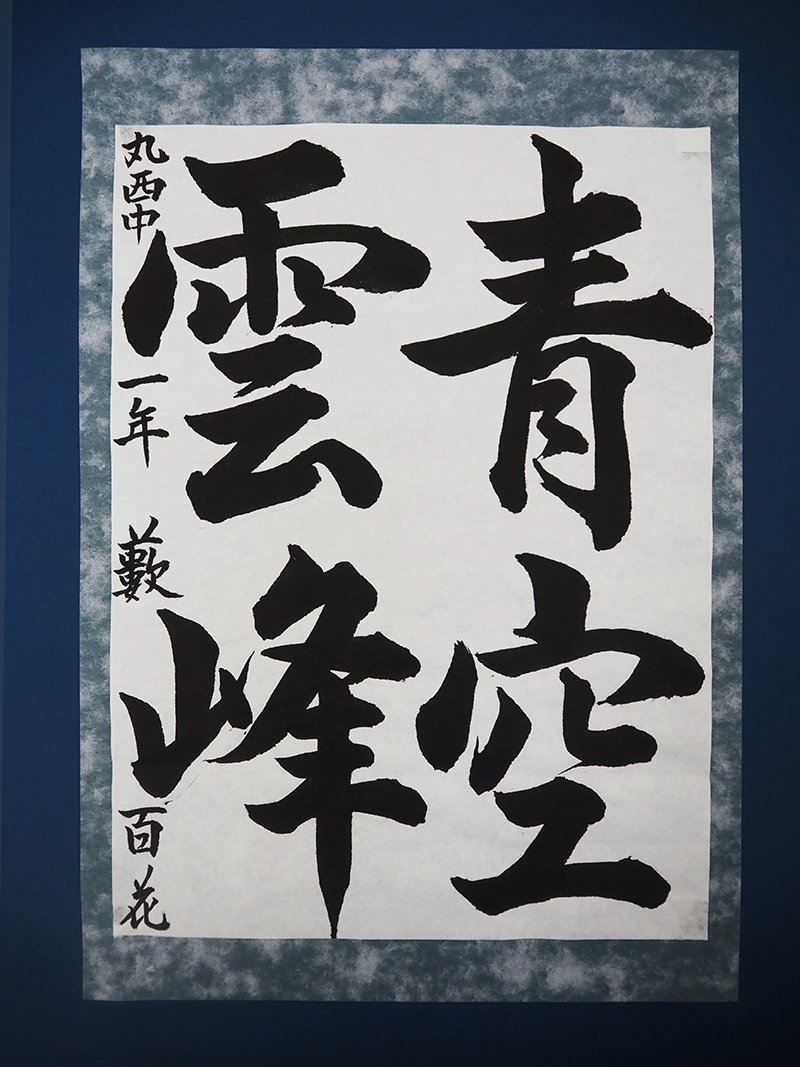 青空
雲峰
丸西中 一年 藪 百花